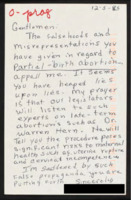 O-prog
12-3-95
Gentlemen:
The falsehoods and
misrepresentations you
have given in regard to
Partial-birth abortion
appall me. It seems
you have heaped lies
upon lies. My prayer
is that our legislators
will listen to such
experts on late-term
abortions such as Dr.
Warren Hern. He will
tell you the procedure poses
significant risks to maternal
health such as uterine rupture
and cervical incompetence.
I'm saddened by such
false propaganda you are
putting forth. Sincerely